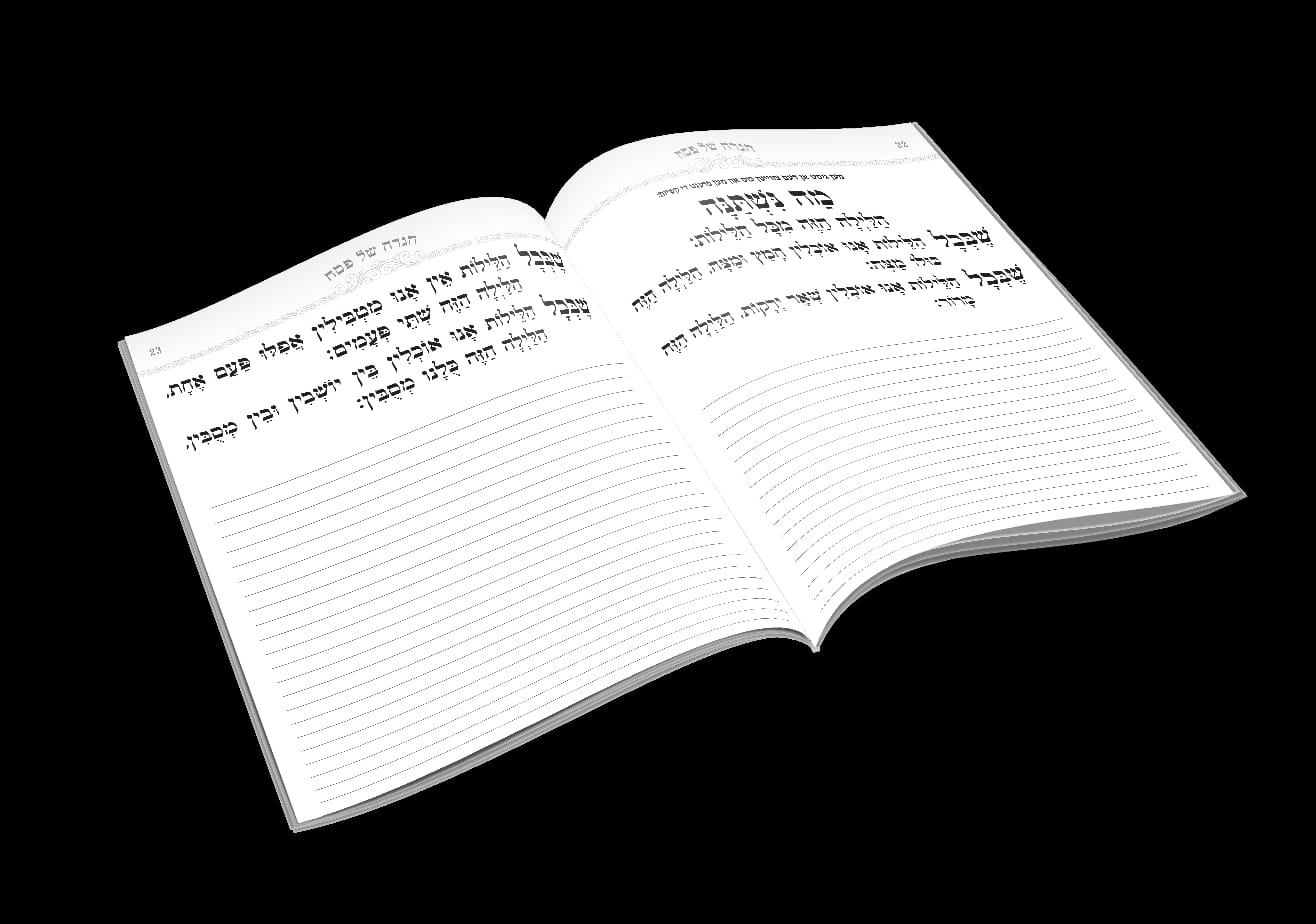 22
הגדה של פסח
מען גיסט אן דעם צווייטן כוס און מען פרעגט די קשיות:
מַה נִּשְׁתַּנָּה
הַלַּיְלָה הַזֶּה מִכָּל הַלֵּילוֹת:
שֶׁבְּכָל הַלֵּילוֹת אָנוּ אוֹכְלִין חָמֵץ וּמַצָּה, הַלַּיְלָה הַזֶּה
כּוּלוֹ מַצָּה:
שֶׁבְּכָל הַלֵּילוֹת אָנוּ אוֹכְלִין שְׁאָר יְרָקוֹת, הַלַּיְלָה הַזֶּה
מָרוֹר:
הגדה של פסח
23
שֶׁבְּכָל הַלֵּילוֹת אֵין אָנוּ מַטְבִּילִין אֲפִלּוּ פַּעַם אֶחָת,
הַלַּיְלָה הַזֶּה שְׁתֵּי פְּעָמִים:
שֶׁבְּכָל הַלֵּילוֹת אָנוּ אוֹכְלִין בֵּין יוֹשְׁבִין וּבֵין מְסֻבִּין,
הַלַּיְלָה הַזֶּה כֻּלָּנוּ מְסֻבִּין: